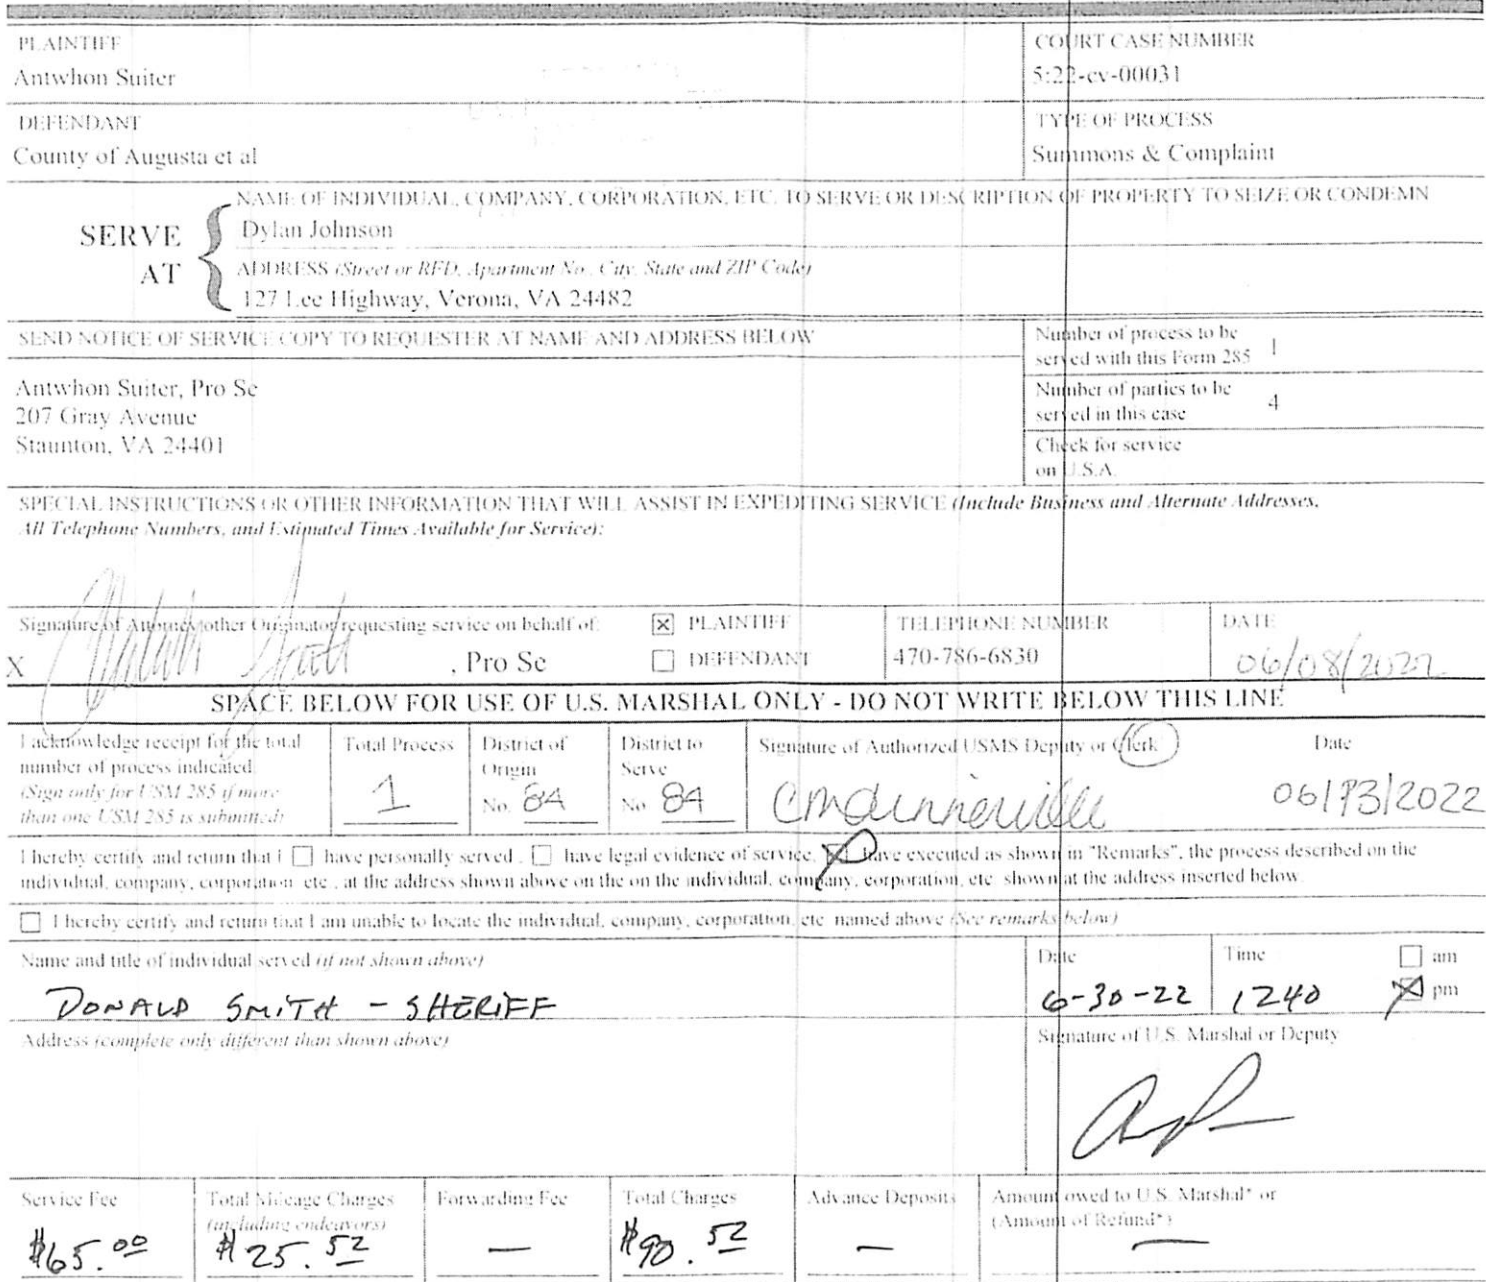 PLAINTIFF
Antwhon Suiter
COURT CASE NUMBER
5:22-cv-00031
DEFENDANT
County of Augusta et al
TYPE OF PROCESS
Summons & Complaint
SERVE
AT
NAME OF INDIVIDUAL, COMPANY, CORPORATION, ETC. TO SERVE OR DESCRIPTION OF PROPERTY TO SEIZE OR CONDEMN
Dylan Johnson
ADDRESS (Street or RFD, Apartment No., City, State and ZIP Code)
127 Lee Highway, Verona, VA 24482
SEND NOTICE OF SERVICE COPY TO REQUESTER AT NAME AND ADDRESS BELOW
Antwhon Suiter, Pro Se
207 Gray Avenue
Staunton, VA 24401
Number of process to be
served with this Form 285 1
Number of parties to be
served in this case 4
Check for service
on U.S.A.
SPECIAL INSTRUCTIONS OR OTHER INFORMATION THAT WILL ASSIST IN EXPEDITING SERVICE (Include Business and Alternate Addresses,
All Telephone Numbers, and Estimated Times Available for Service):
Signature of Attorney other Originator requesting service on behalf of:
X , Pro Se
PLAINTIFF
DEFENDANT
TELEPHONE NUMBER
470-786-6830
DATE
06/08/2022
SPACE BELOW FOR USE OF U.S. MARSHAL ONLY - DO NOT WRITE BELOW THIS LINE
I acknowledge receipt for the total
number of process indicated.
(Sign only for USM 285 if more
than one USM 285 is submitted)
Total Process
1
District of
Origin
No. 84
District to
Serve
No. 84
Signature of Authorized USMS Deputy or Clerk
Date
2022
I hereby certify and return that I have personally served , have legal evidence of service, have executed as shown in "Remarks", the process described on the
individual, company, corporation, etc., at the address shown above on the on the individual, company, corporation, etc. shown at the address inserted below.
I hereby certify and return that I am unable to locate the individual, company, corporation, etc. named above (See remarks below)
Name and title of individual served (if not shown above)
DONALD SMITH - SHERIFF
Date
6-30-22
Time
1240
am
pm
Address (complete only different than shown above)
Signature of U.S. Marshal or Deputy
Service Fee
$65.00
Total Mileage Charges
(including endeavors)
$25.52
Forwarding Fee
—
Total Charges
$90.52
Advance Deposits
—
Amount owed to U.S. Marshal* or
(Amount of Refund*)
—